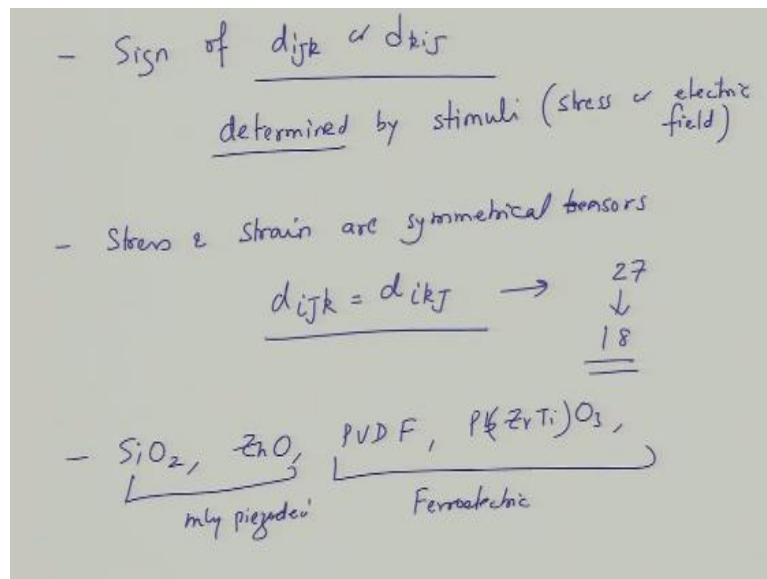 - Sign of dijk or dkij
determined by stimuli (stress or electric field)
- Stress & strain are symmetrical tensors
dijk = dikj → 27
↓
18
- SiO2, ZnO, PVDF, Pb(ZrTi)O3,
only Ferroelectric